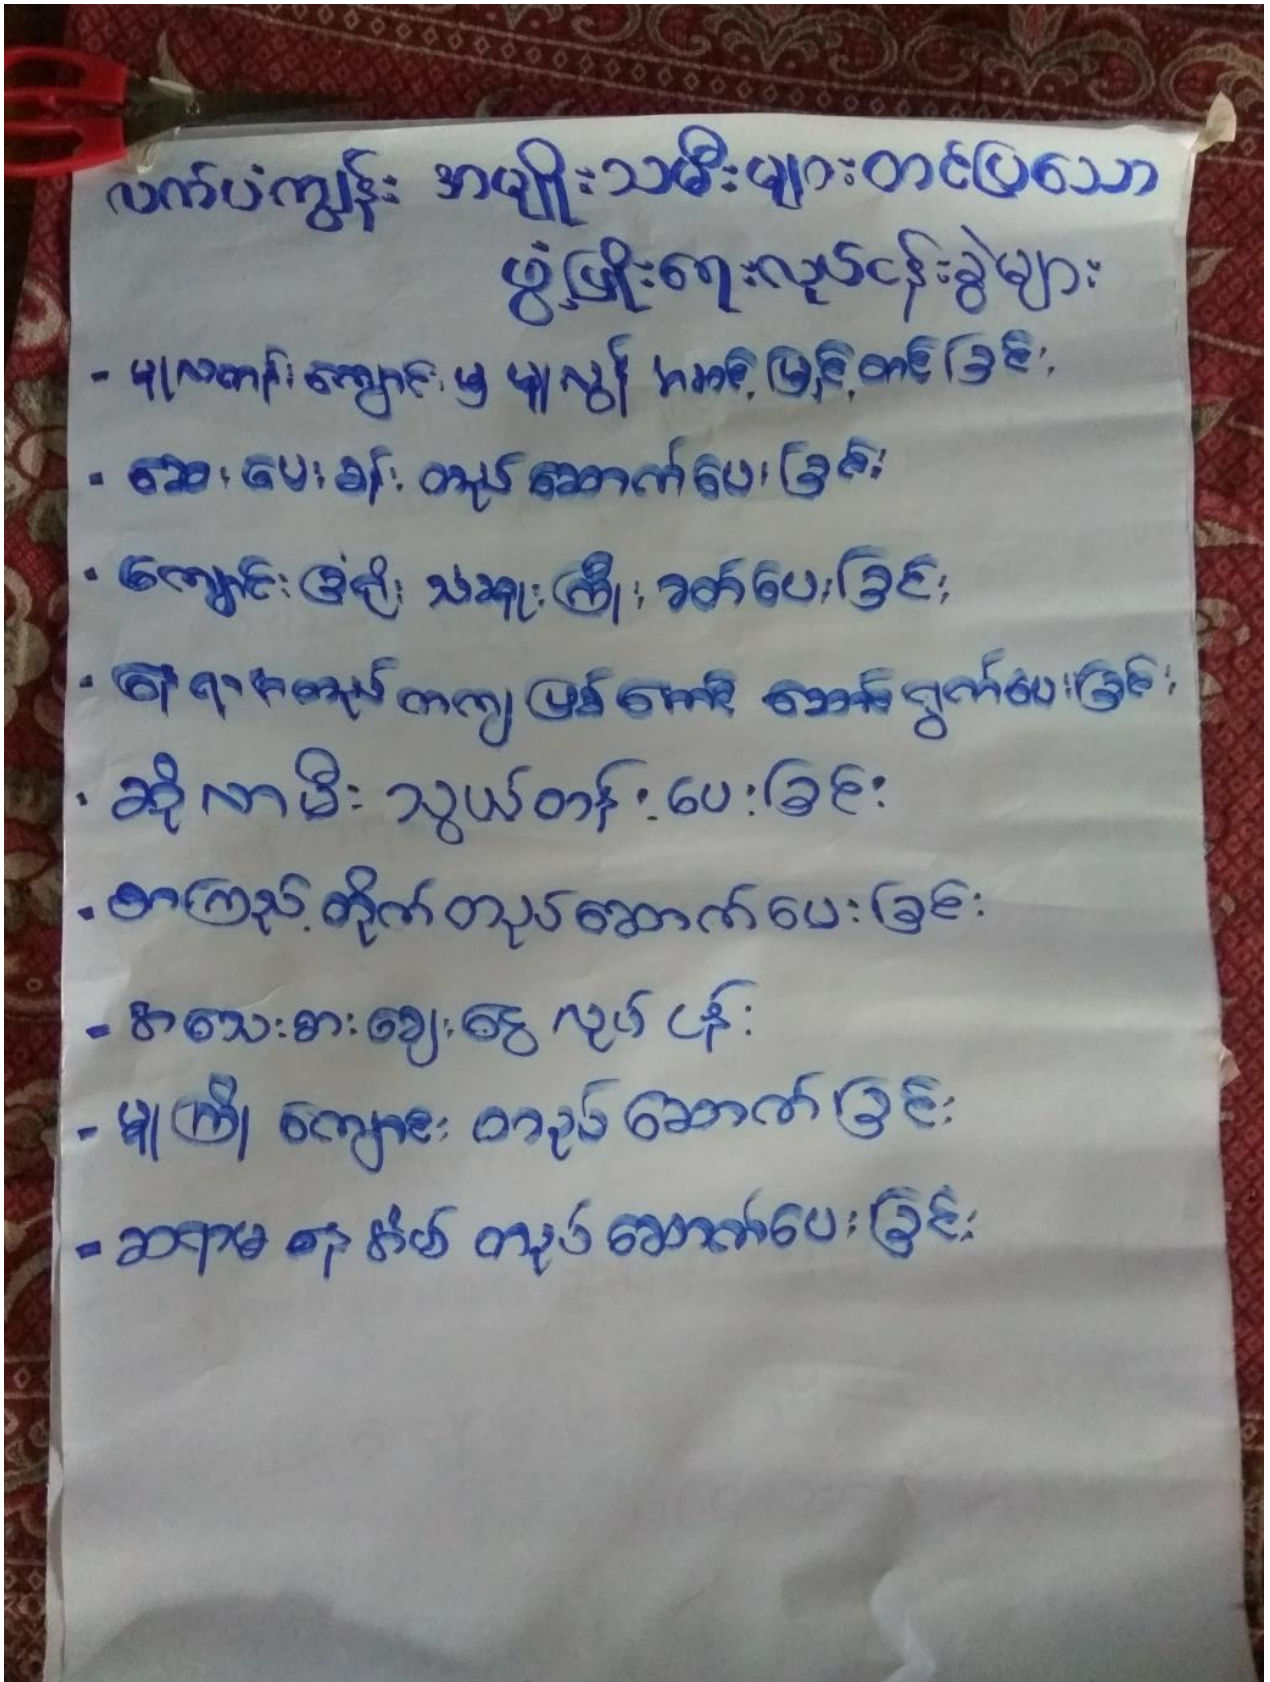 လက်ပံကျွန်း အမျိုးသမီးများတင်ပြသော
ဖွံ့ဖြိုးရေးလုပ်ငန်းခွဲများ
- မူလတန်းကျောင်းမှ မူလွန် အဆင့်မြှင့်တင်ခြင်း
- ဆေးပေးခန်း တည်ဆောက်ပေးခြင်း
- ကျောင်းခြံစည်း သံဆူးကြိုး ခတ်ပေးခြင်း
- နေရာအတည်တကျဖြစ်အောင် ဆောင်ရွက်ပေးခြင်း
- ဆိုလာမီး သွယ်တန်းပေးခြင်း
- စာကြည့်တိုက်တည်ဆောက်ပေးခြင်း
- အသေးစားချေးငွေ လုပ်ငန်း
- မူကြို ကျောင်း တည်ဆောက်ခြင်း
- ဆရာမ နေအိမ် တည်ဆောက်ပေးခြင်း